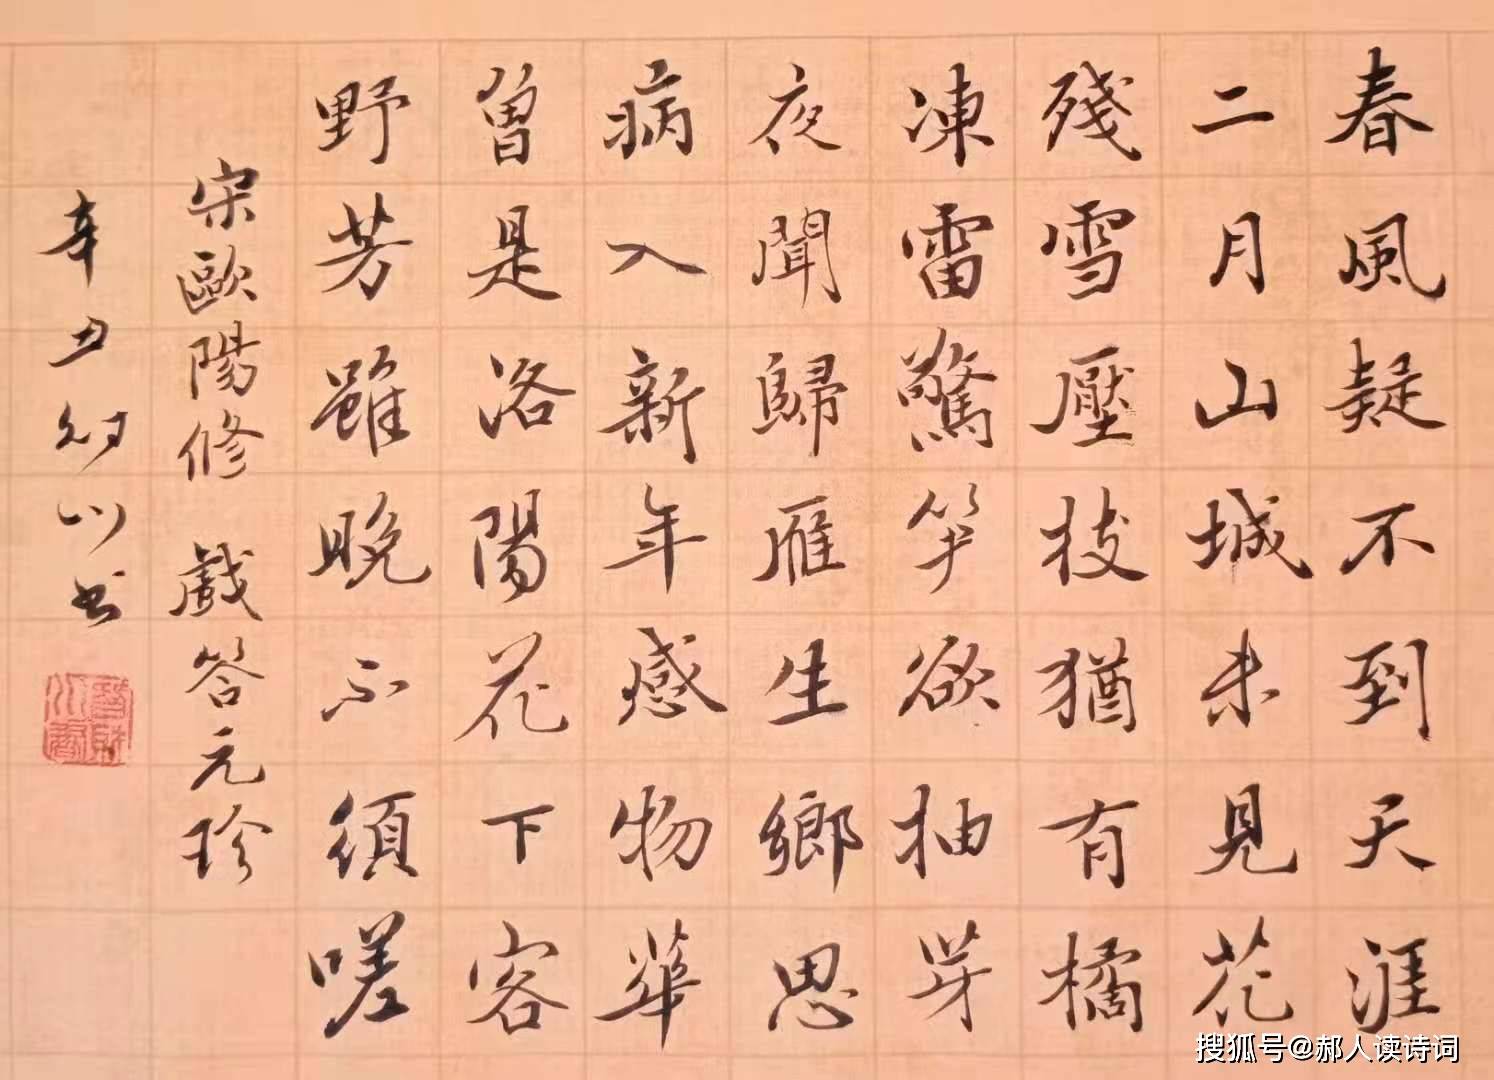 春風疑不到天涯
二月山城未見花
殘雪壓枝猶有橘
凍雷驚笋欲抽芽
夜聞歸雁生鄉思
病入新年感物華
曾是洛陽花下客
野芳雖晚不須嗟
宋歐陽修 戲答元珍
辛丑 山书
搜狐号@郝人读诗词